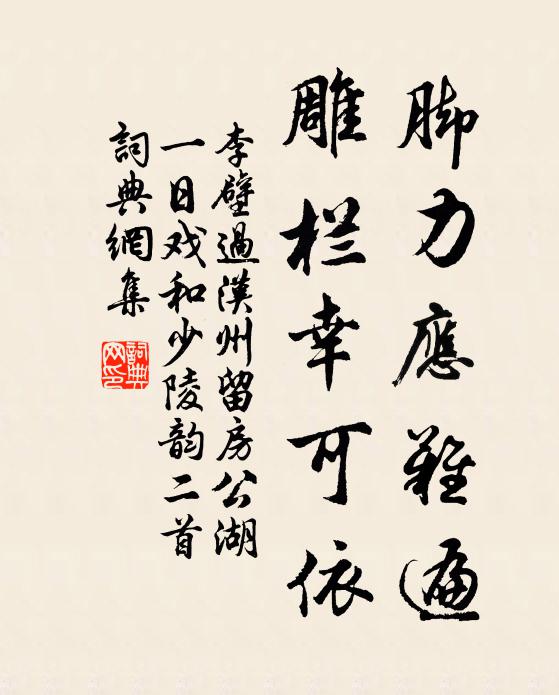 脚力應難遍
雕栏幸可依
李壁過漢州留房公湖
一日戏和少陵韵二首
詞典網集
詞典网印